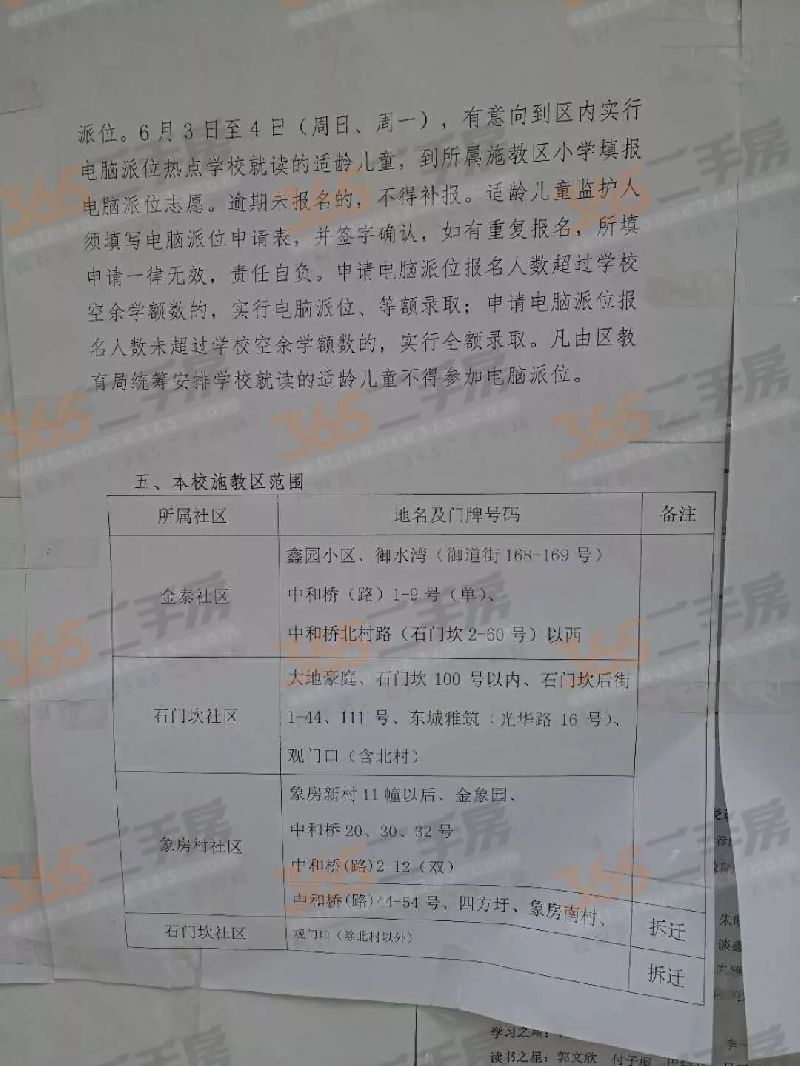 派位。6月3日至4日（周日、周一），有意向到区内实行
电脑派位热点学校就读的适龄儿童，到所属施教区小学填报
电脑派位志愿。逾期未报名的，不得补报。适龄儿童监护人
须填写电脑派位申请表，并签字确认，如有重复报名，所填
申请一律无效，责任自负。申请电脑派位报名人数超过学校
空余学额数的，实行电脑派位、等额录取；申请电脑派位报
名人数未超过学校空余学额数的，实行全额录取。凡由区教
育局统筹安排学校就读的适龄儿童不得参加电脑派位。
五、本校施教区范围
所属社区 地名及门牌号码 备注
金泰社区
鑫园小区、御水湾（御道街168-169号）
中和桥（路）1-9号（单）、
中和桥北村路（石门坎2-60号）以西
石门坎社区
大地豪庭、石门坎100号以内、石门坎后街
1-44、111号、东城雅筑（光华路16号）、
观门口（含北村）
象房村社区
象房新村11幢以后、金象园、
中和桥20、30、32号
中和桥(路)2-12（双）
中和桥(路)44-54号、四方圩、象房南村、 拆迁
石门坎社区 观门口（除北村以外） 拆迁
学习之星：
读书之星：郭文欣 付子桐
365二手房